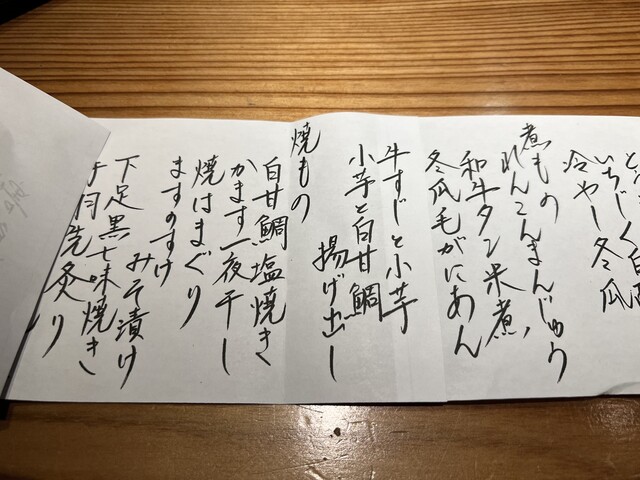 いちじく白
冷やし冬瓜
煮もの
れんこんまんじゅう
和牛タン米煮
冬瓜毛がにあん
牛すじと小芋
小芋と白甘鯛
揚げ出し
焼もの
白甘鯛塩焼き
かます一夜干し
焼はまぐり
ますのすけ
みそ漬け
下足黒七味焼き
子持昆布炙り